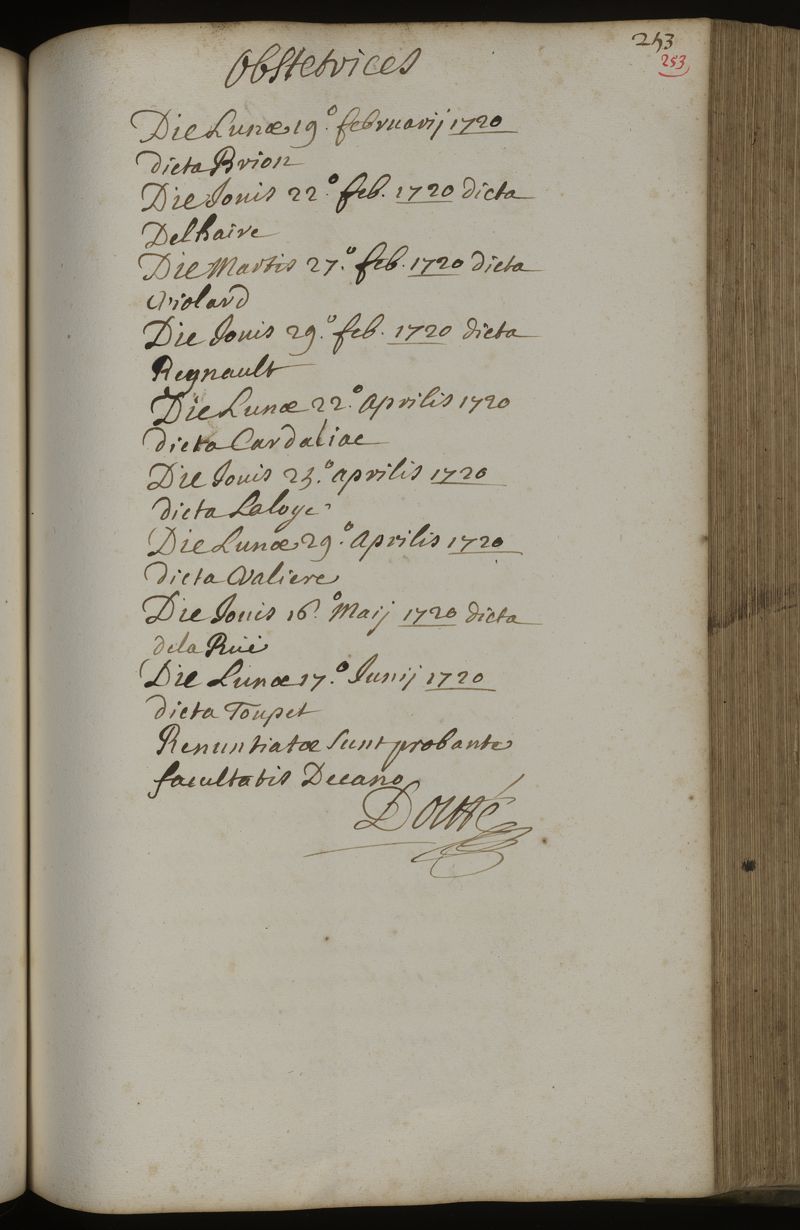 253
253
Obstetrices
Die Lunæ 19.º februarij 1720
dicta Brion
Die Jovis 22.º feb. 1720 dicta
Delhaire
Die Martis 27.º feb. 1720 dicta
Violard
Die Jovis 29.º feb. 1720 dicta
Regnault
Die Lunæ 22.º Aprilis 1720
dicta Cardaliac
Die Jovis 25.º aprilis 1720
dicta Laloye
Die Lunæ 29.º Aprilis 1720
dicta Valiere
Die Jovis 16.º Maij 1720 dicta
dela Rüe
Die Lunæ 17.º Junij 1720
dicta Toupet
Renuntiatæ sunt probante
facultatis Decano
Doutté